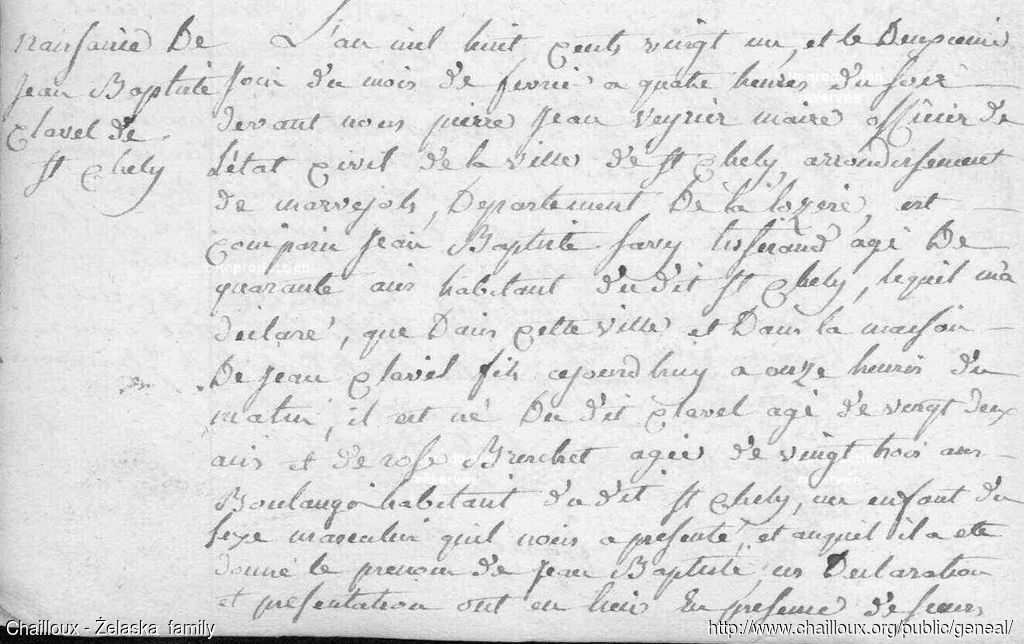 naissance De
Jean Baptiste
Clavel de
St Chely
L'an mil huit cents vingt un, et le Deuxieme
Jour du mois de fevrié a quatre heures du soir
devant nous pierre Jean Veyrier maire officier de
L'état civil de la ville de St Chely, arrondissement
de marvejols, Departement De la lozére, est
comparu Jean Baptiste Savy tisserand agé De
quarante ans habitant du dit St Chely, lequel m'a
déclaré, que Dans cette ville et Dans la maison
De Jean Clavel fils aujourd huy a onze heures du
matin, il est né Du dit Clavel agé de vingt deux
ans et de rose Brunchet agée de vingt trois ans
Boulangé habitant du dit St Chely, un enfant du
sexe masculin quil nous a presenté, et auquel il a eté
donné le prenom de Jean Baptiste, Declaration
et presentation ont eu lieu En presence de sieurs
Chailloux - Żelaska family
http://www.chailloux.org/public/geneal/